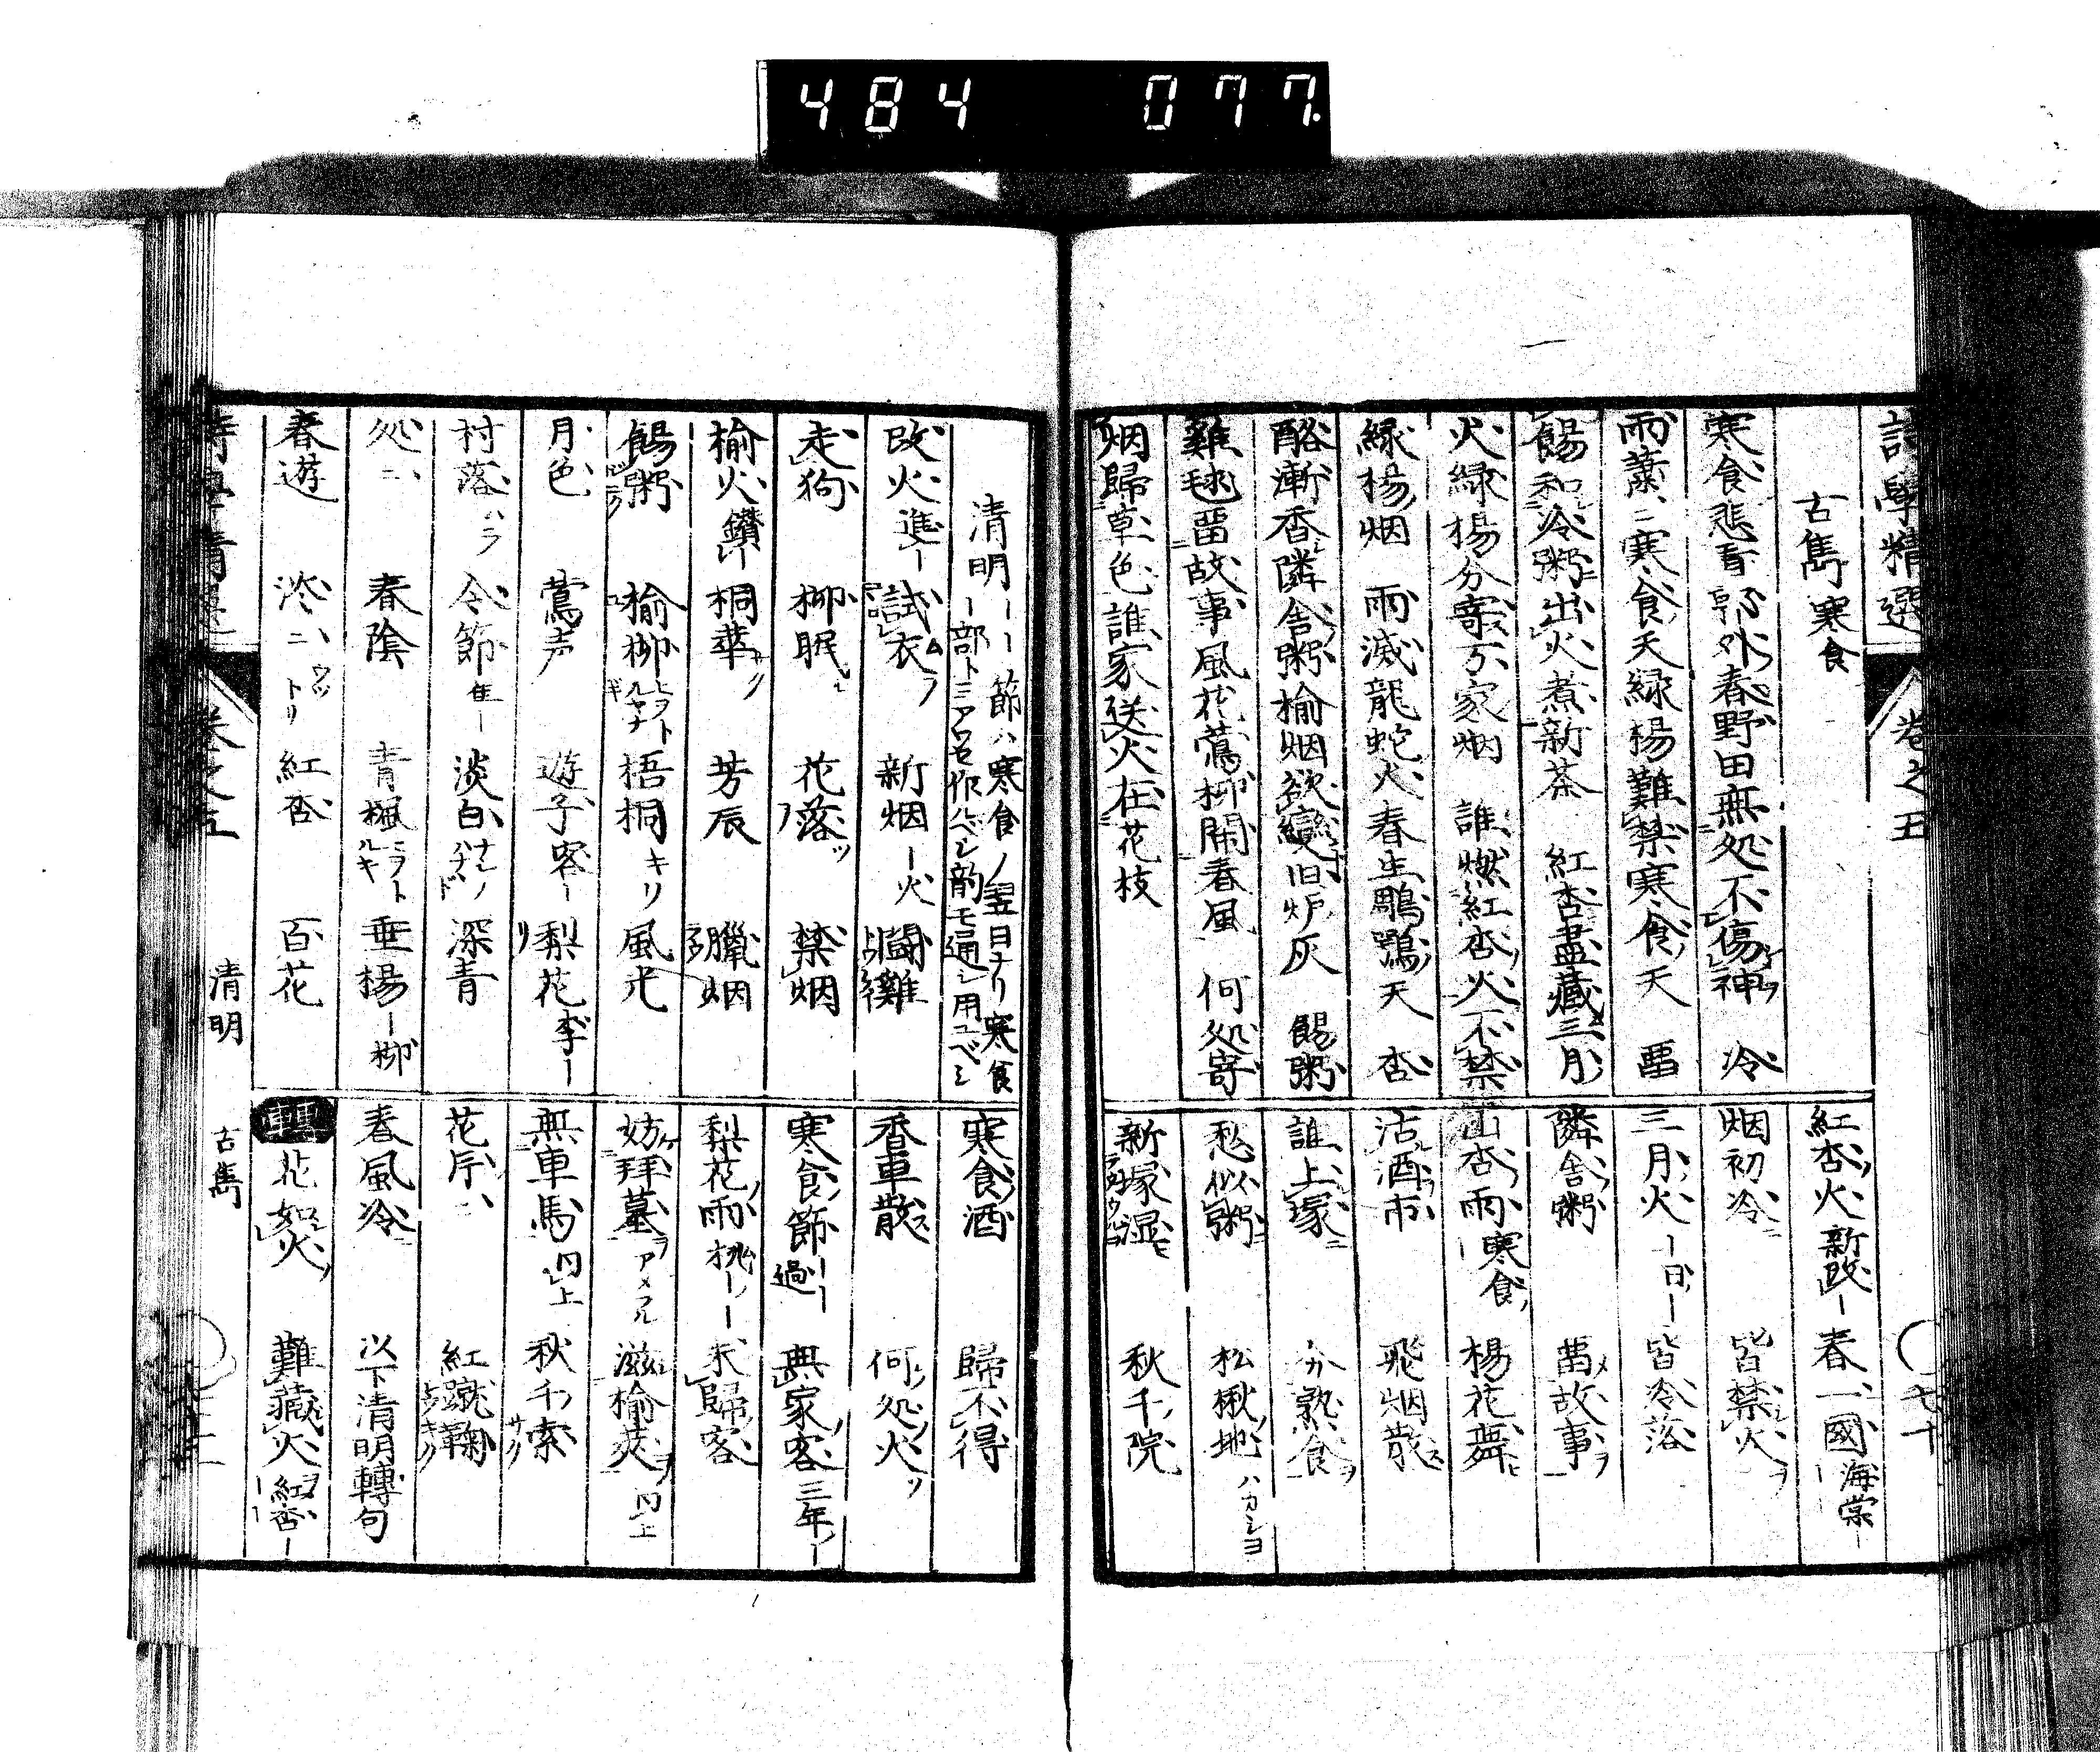 484 077
詩學精選 卷之五
古雋 寒食
寒食悲看郭外春野田無処不傷神 冷
雨蕭ニ寒食天緑楊難禁寒食天 畱
餳和冷粥出火煮新茶 紅杏盡藏三月
火緑楊分寄万家烟 誰燃紅杏火不禁
緑楊烟 雨滅龍蛇火春生鴨鶩天 杏
酪漸香隣舎粥榆烟欲變旧炉灰 餳粥
雞毬畱故事風花鶯柳閙春風 何処寄
烟歸草色誰家送火在花枝
紅杏火 新改ー 春一國 海棠ー
烟初冷 皆禁火ヲ
三月火ー日ー 皆冷落
隣舎粥 畱故事ヲ
山杏雨 寒食 楊花舞
沽酒市 飛烟散ス
誰上塚 分熟食ヲ
愁似粥 松楸地ハカシヨ
新塚湿 秋千院
清明ーー節ハ寒食ノ翌日ナリ寒食
ー部トミアワセ作ルベシ韵モ通シ用ユベシ
改火進ー 試衣ヲ 新烟ー火 鬪雞
走狗 柳眠 花落ツ 禁烟
榆火鑚ー 桐華 芳辰 臘烟
餳粥 榆柳 梧桐キリ 風光
月色 鶯声 遊子客ー 梨花李ー
村落 令節隹ー 淡白 深青
処ニ 春陰 青楓 垂楊ー柳
春遊 冷ニ 紅杏 百花
寒食酒 歸不得
香車散ス 何処火
寒食節ーー過 無家客三年ー
梨花雨桃ーー 未歸客
妨拜墓ヲ 滋榆莢ヲ 同上
無車馬同上 秋千索
花片ニ 紅蹴鞠
春風冷 以下清明轉句
轉 花如火 難藏火 紅杏ー
清明 古雋